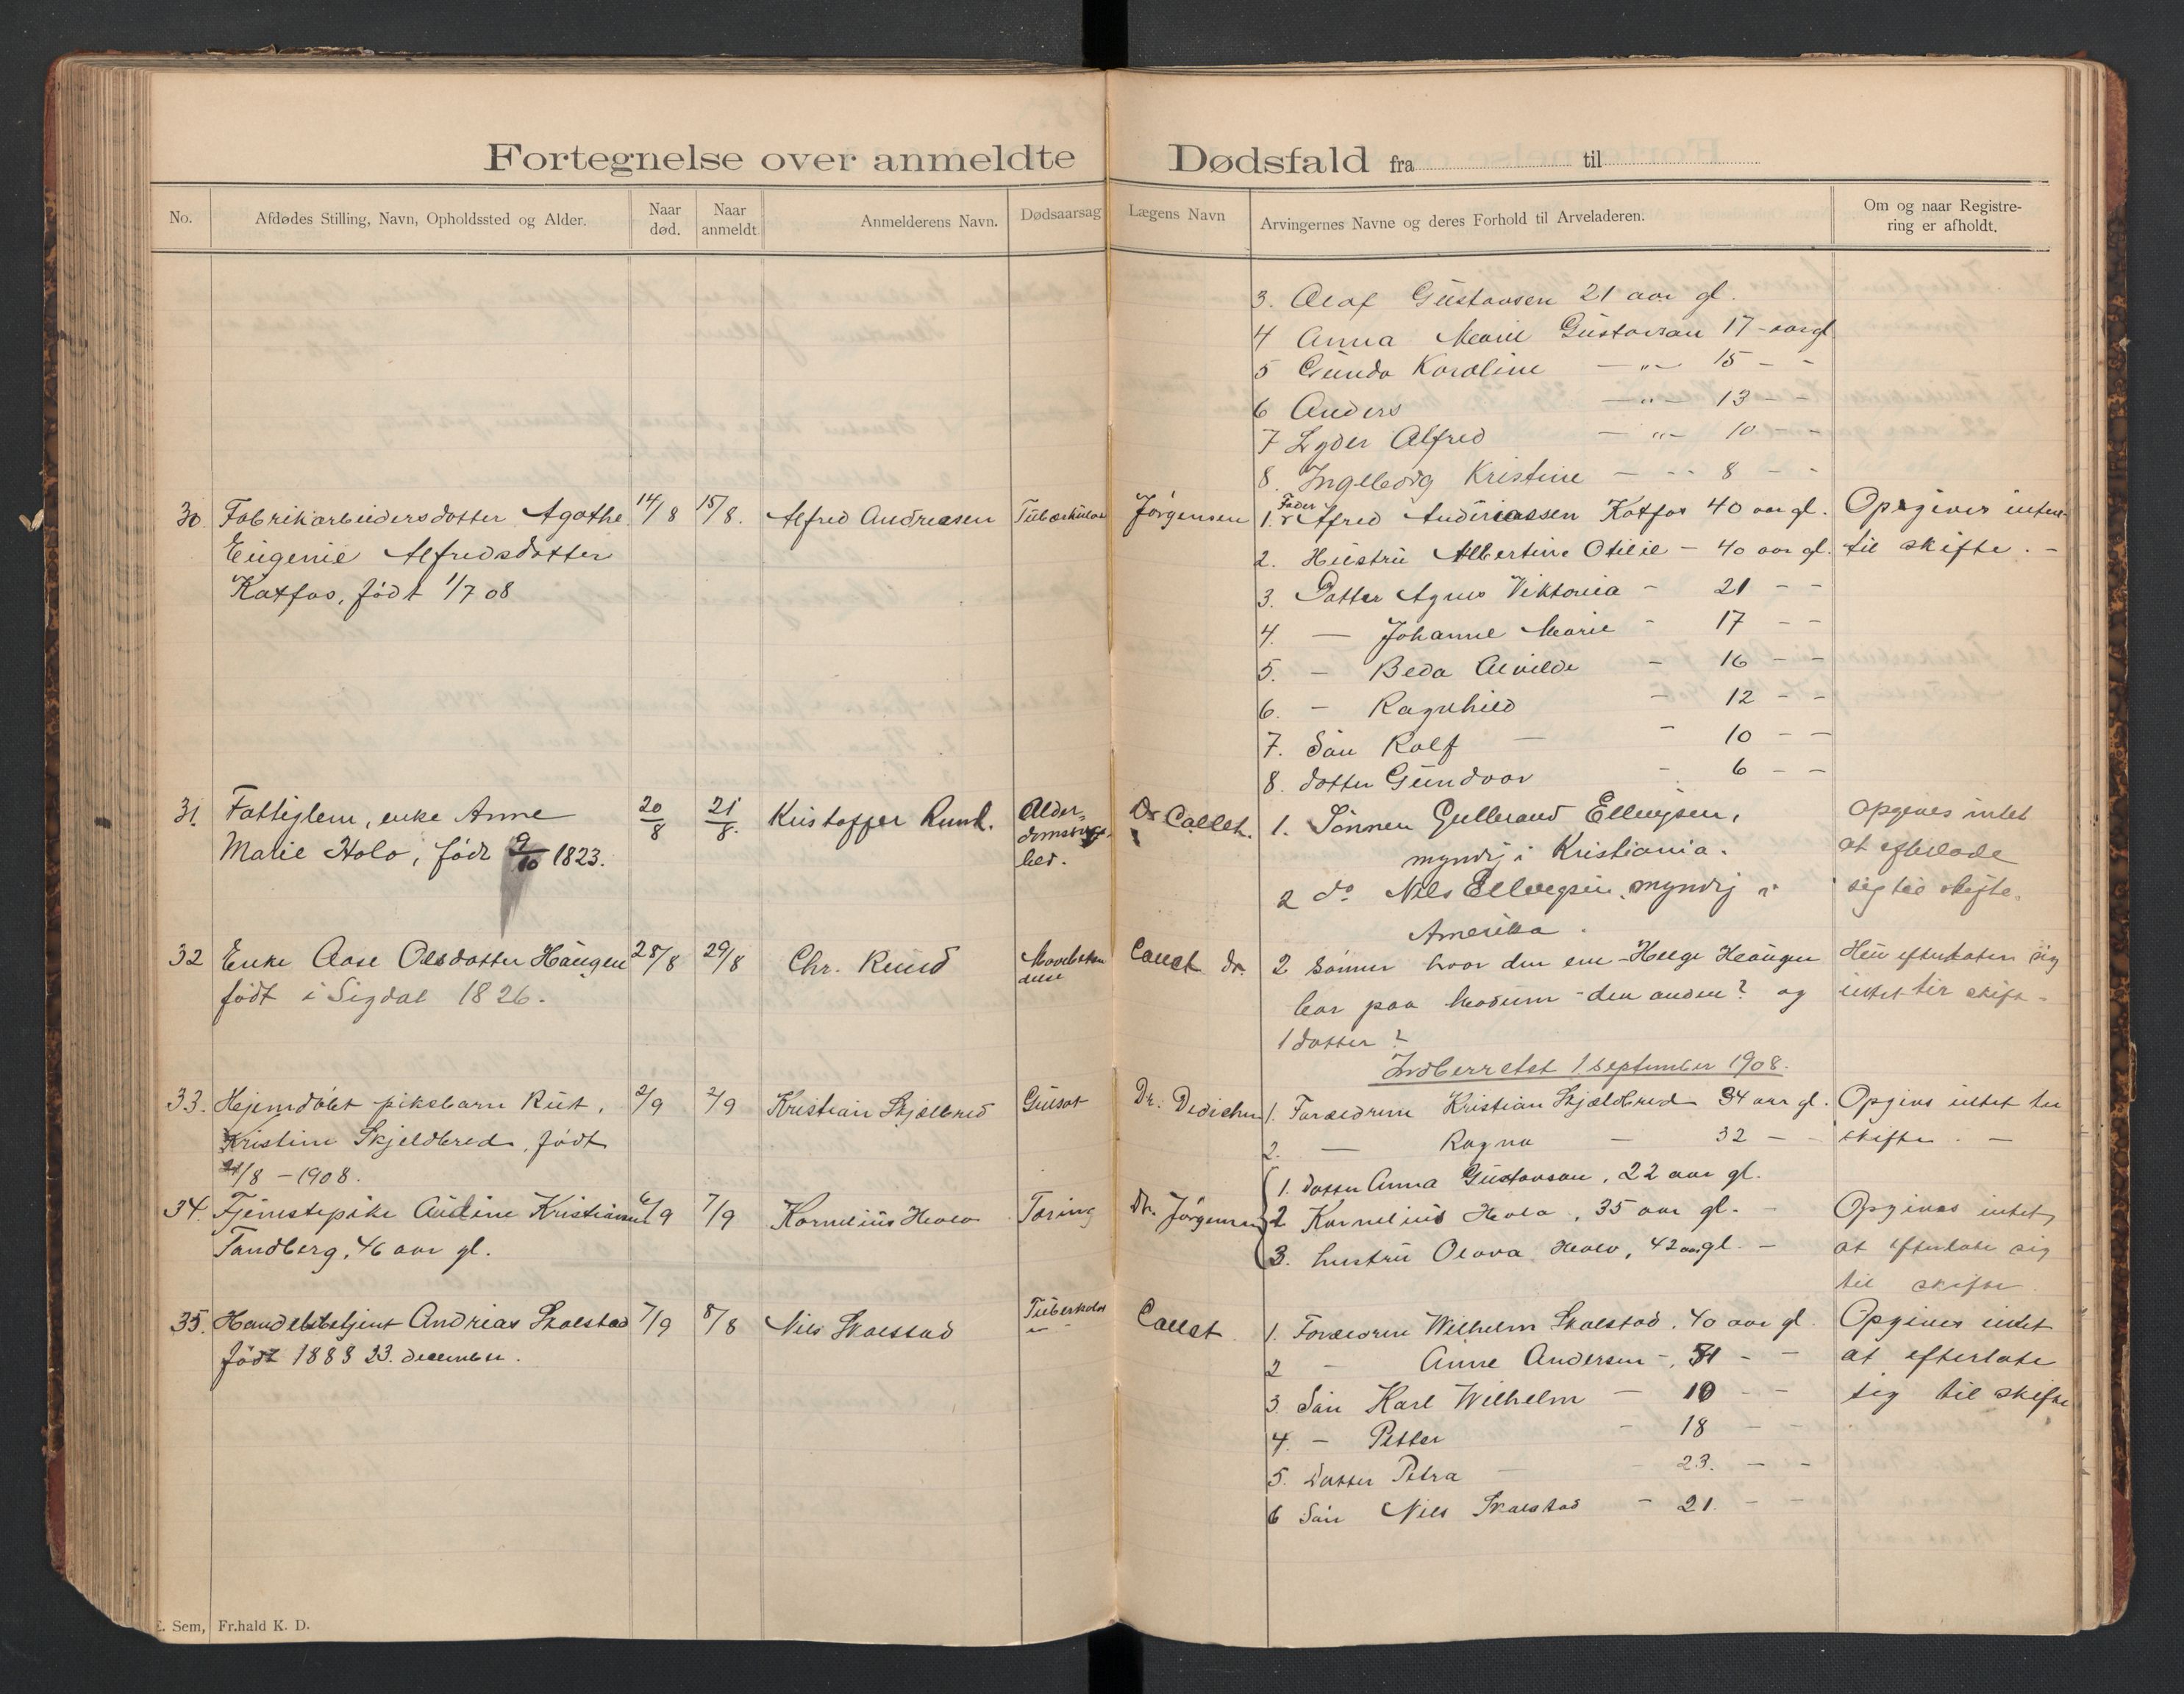 Fortegnelse over anmeldte Dødsfald fra til
No.
Afdødes Stilling, Navn, Opholdssted og Alder.
Naar død.
Naar anmeldt
Anmelderens Navn.
Dødsaarsag
Lægens Navn
Arvingernes Navne og deres Forhold til Arveladeren.
Om og naar Registre-
ring er afholdt.
3. Olaf Gustavsen 21 aar gl.
4 Anna Marie Gustavsen 17 - aar gl
5 Gunda Karoline — " — 15 - -
6 Anders — " — 13 - -
7 Lyder Alfred — " — 10 - -
8. Ingeborg Kristine — - - 8 - -
30. Fabrikarbeidersdotter Agathe 14/8 15/8. Alfred Andreasen Tuberkulose Jørgensen 1. Fader Alfred Andreassen Katfos 40 aar gl. Opgives intet
Eugenie Alfredsdotter 2. Hustru Albertine Otilie - 40 aar gl. til skifte. -
Katfos, født 1/7 08 3. Datter Agnes Viktoria - 21 - -
4. — Johanne Marie - 17 - -
5. - Beda Alvilde - 16 - -
6. - Ragnhild - 12 - -
7. Søn Rolf — - 10 - -
8. datter Gundvor - 6 - -
31. Fattiglem, enke Anne 20/8 21/8. Kristoffer Ruud. Alder- Dr Callet. 1. Sønnen Gulbrand Ellingsen, Opgives intet
Marie Holo, født 9/10 1823. doms myndig i Kristiania. at efterlade
hed. 2 do Nils Ellingsen, myndig i sig til skifte.
Amerika.
32 Enke Aase Olsdotter Haugen 28/8 29/8 Chr. Ruud Callet dr. 2 sønner hvor den ene - Helge Haugen Hun efterlater sig
født i Sigdal 1826. bor paa Modum - den anden? og intet til skift -
1 datter ?
Indberettet 1 september 1908.
33. Hjemdøbt pikebarn Rut, 2/9 2/9 Kristian Skjelbred Gulsot Dr. Dedichen 1. Forældrene Kristian Skjeldbred 34 aar gl. Opgives intet til
Kristine Skjeldbred, født 2. — Ragna — 32 - skifte. —
/8 - 1908. 1. datter Anna Gustavsen, 22 aar gl.
34. Tjenestepike Audine Kristiansen 6/9 7/9 Kornelius Holo Tæring Dr. Jørgensen 2 Kornelius Holo, 35 aar gl. - Opgives intet
Tandberg, 46 aar gl. 3. hustru Olava Holo, 42 aar gl. - at efterlate sig
til skifte
35. Handelsbetjent Andreas Skalstad 7/9 8/8 Nils Skalstad Tuberkulos Callet 1. Forældrene Wilhelm Skalstad, 40 aar gl. Opgives intet
født 1888 23. december. 2 - Anne Andersen -, 51 - - at efterlate
3 Søn Karl Wilhelm — 10 - - sig til skifte
4. - Petter - 18 - -
5. Datter Petra — 23. - -
6 Søn Nils Skalstad - 21. - -
E. Sem, Fr.hald K. D.